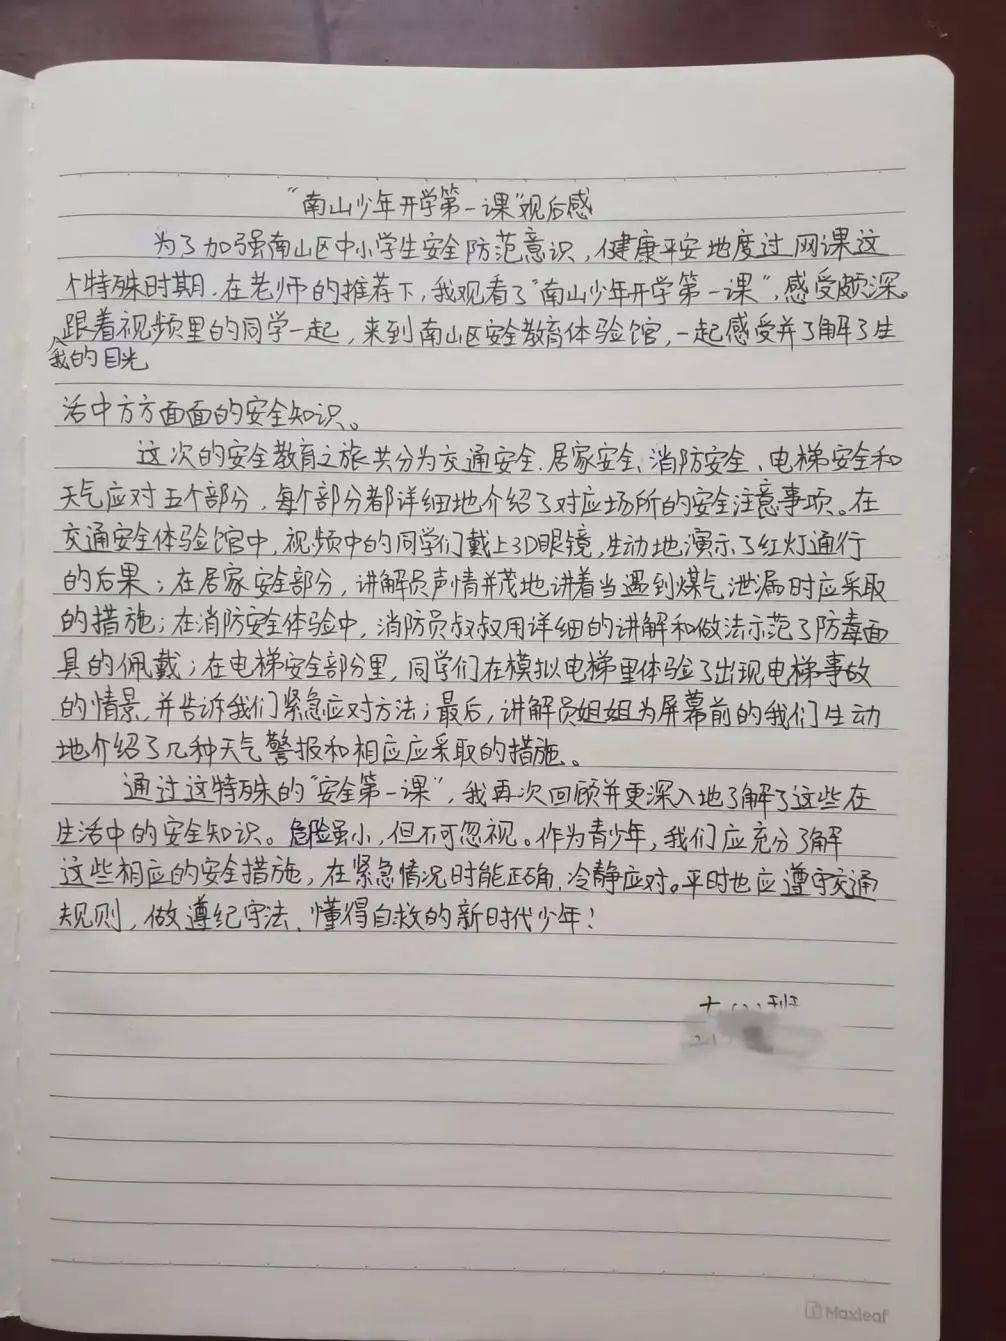 “南山少年开学第一课”观后感
为了加强南山区中小学生安全防范意识，健康平安地度过网课这
个特殊时期，在老师的推荐下，我观看了“南山少年开学第一课”，感受颇深。
跟着视频里的同学一起，来到南山区安全教育体验馆，一起感受并了解了生
我的目光
活中方方面面的安全知识。
这次的安全教育之旅共分为交通安全、居家安全、消防安全、电梯安全和
天气应对五个部分，每个部分都详细地介绍了对应场所的安全注意事项。在
交通安全体验馆中，视频中的同学们戴上3D眼镜，生动地演示了红灯通行
的后果；在居家安全部分，讲解员声情并茂地讲着当遇到煤气泄漏时应采取
的措施；在消防安全体验中，消防员叔叔用详细的讲解和做法示范了防毒面
具的佩戴；在电梯安全部分里，同学们在模拟电梯里体验了出现电梯事故
的情景，并告诉我们紧急应对方法；最后，讲解员姐姐为屏幕前的我们生动
地介绍了几种天气警报和相应应采取的措施。
通过这特殊的“安全第一课”，我再次回顾并更深入地了解了这些在
生活中的安全知识。危险虽小，但不可忽视。作为青少年，我们应充分了解
这些相应的安全措施，在紧急情况时能正确，冷静应对。平时也应遵守交通
规则，做遵纪守法、懂得自救的新时代少年！
班
Maxleaf